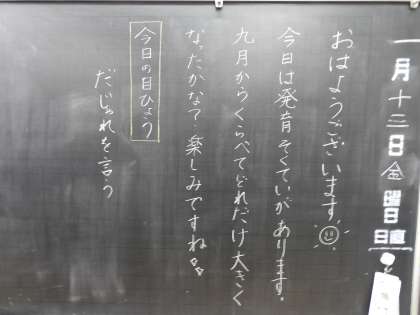 一月十三日金曜日
日直
おはようございます。
今日は発育そくていがあります。
九月からくらべてどれだけ大きく
なったかな？楽しみですね
今日の目ひょう
だじゃれを言う